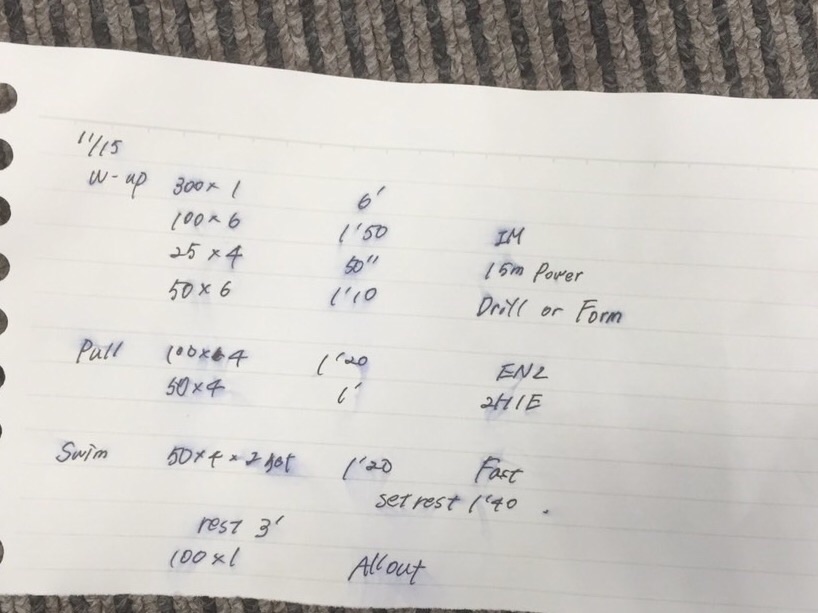 11/15
W-up 300×1 6'
100×6 1'50 IM
25×4 50" 15m Power
50×6 1'10 Drill or Form
Pull 100×4 1'20 EN2
50×4 1' 2H1E
Swim 50×4×2 1'20 Fast
set rest 1'40.
rest 3'
100×1 All out